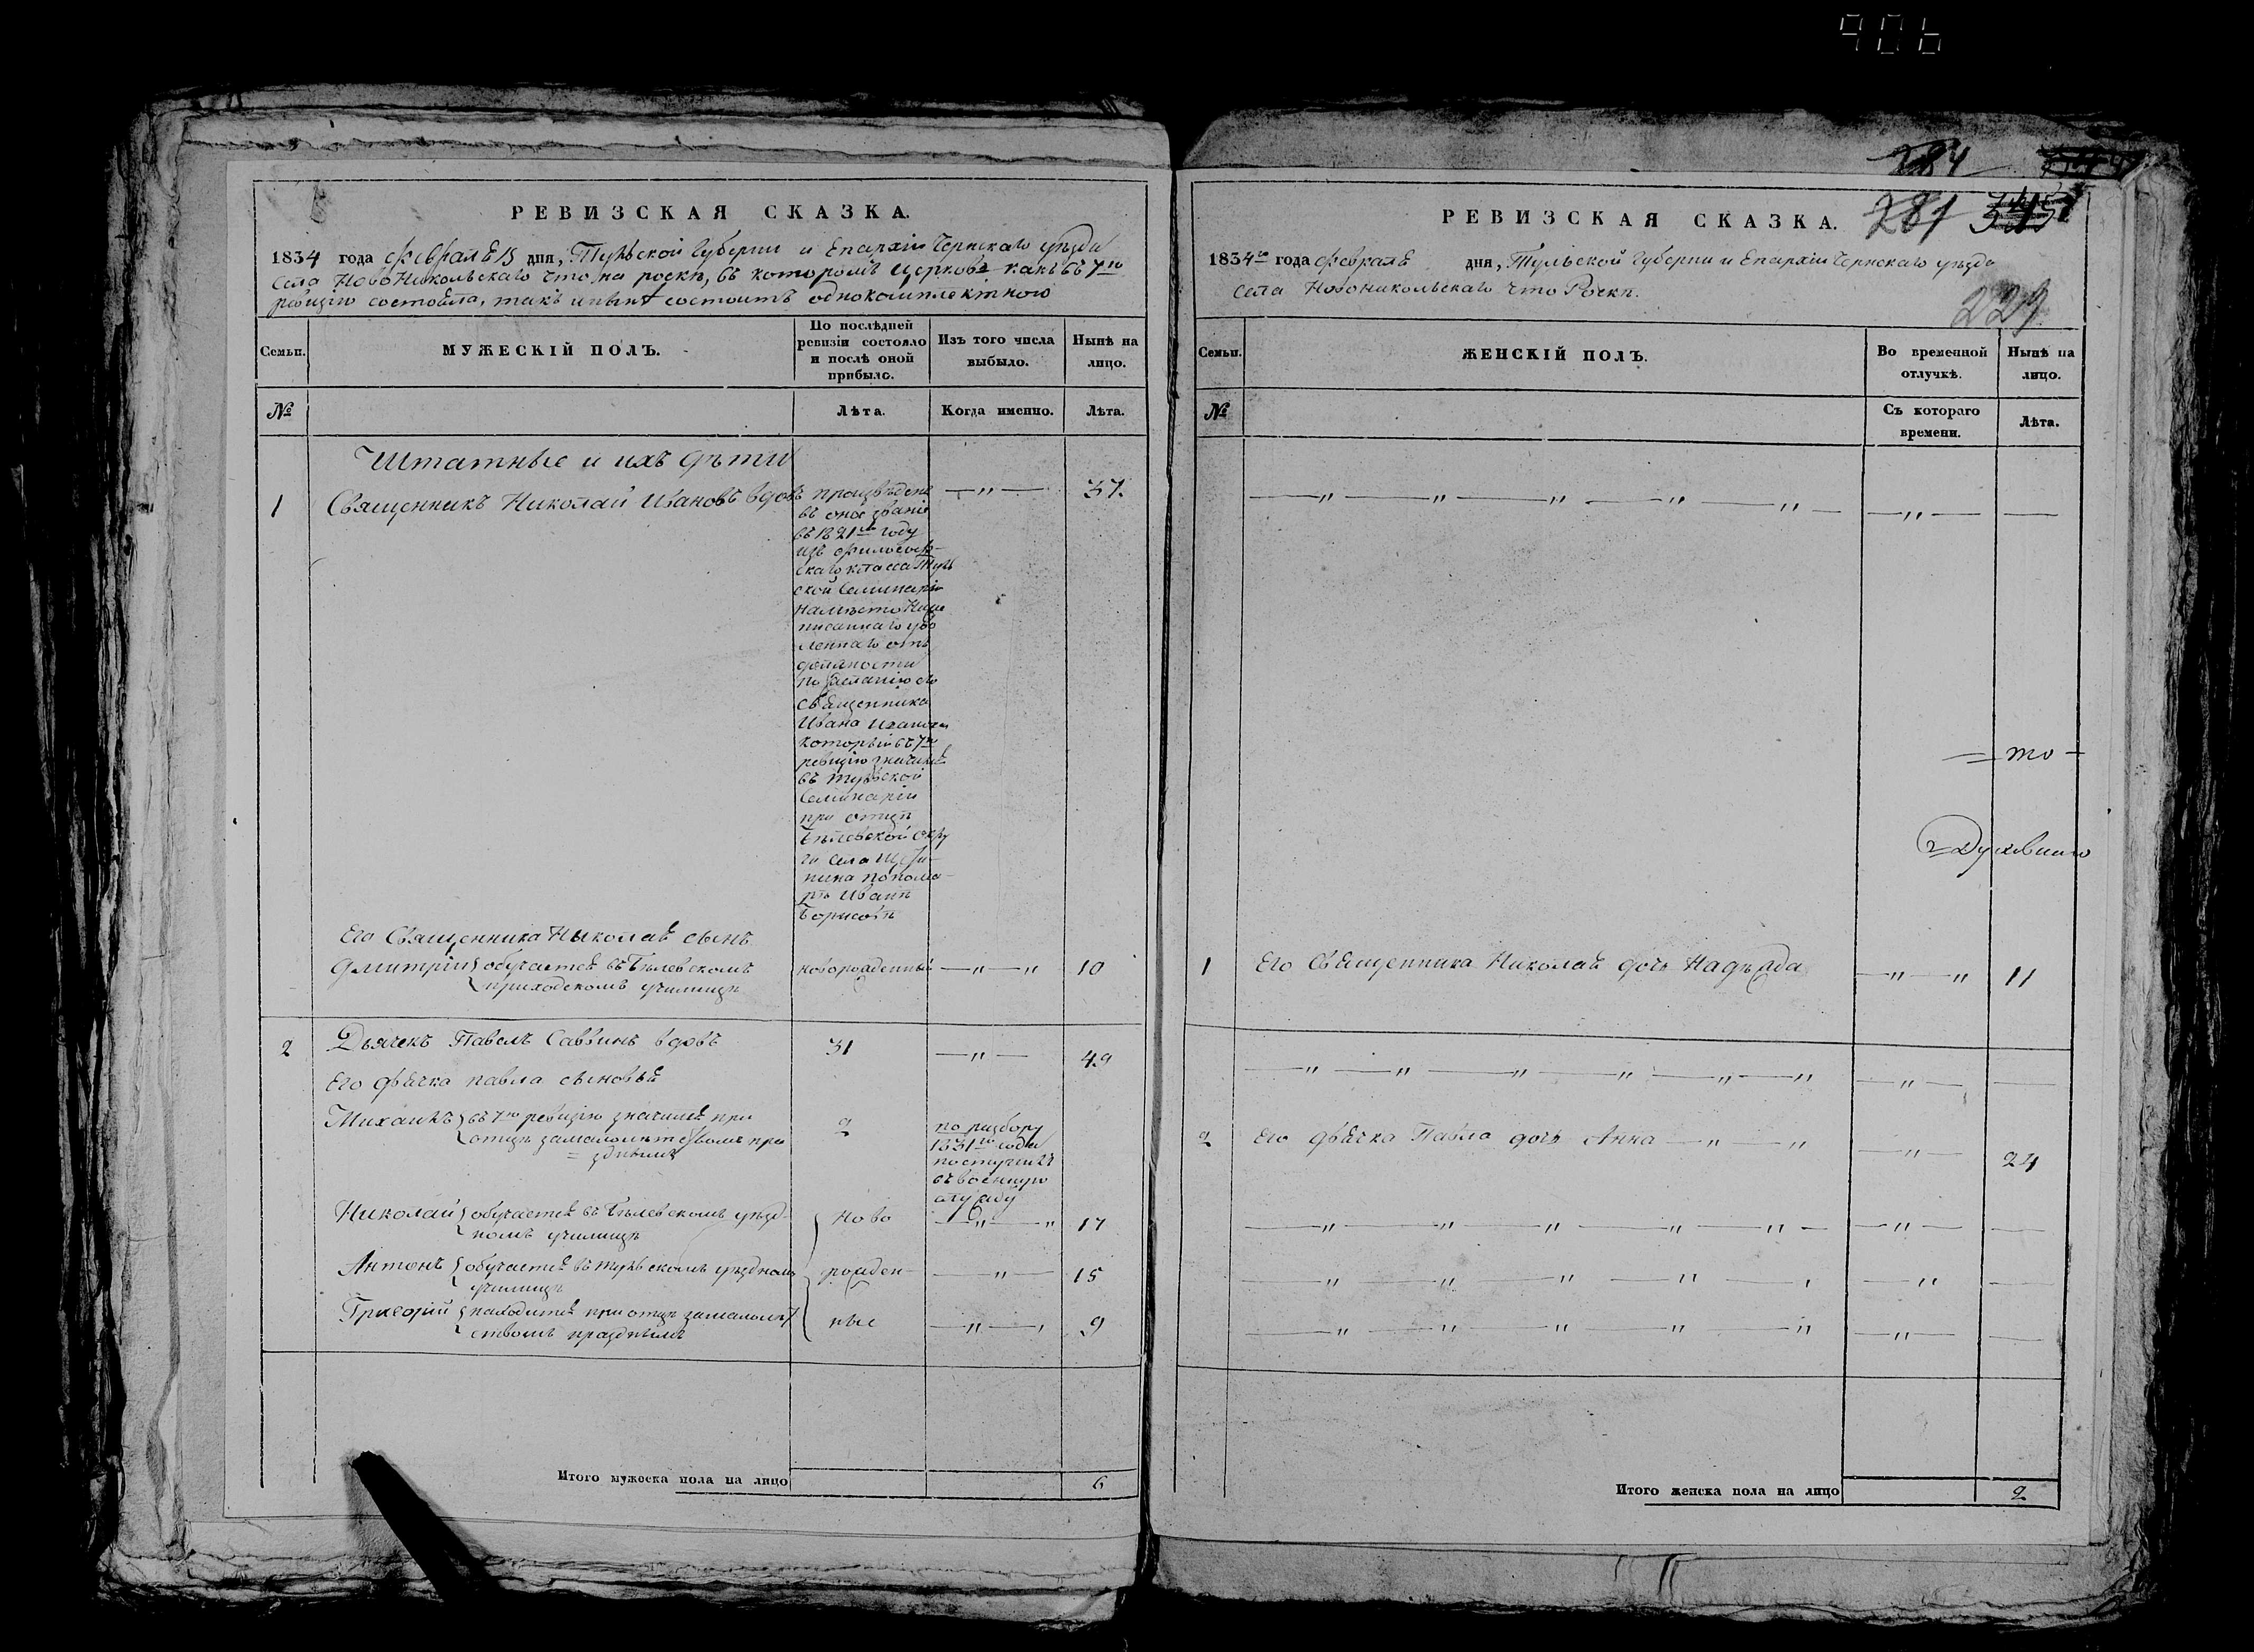 906
РЕВИЗСКАЯ СКАЗКА.
1834 года февраля 15 дня, Тульской Губернии и Епархіи Чернскаго уѣзда
села НовоНикольскаго что на роскѣ, въ которомъ церковь какъ въ 7ю
ревизію состояла, такъ и нынѣ состоитъ однокомплектною
Семьи.
МУЖЕСКІЙ ПОЛЪ.
По послѣдней ревизіи состояло и послѣ оной прибыло.
Изъ того числа выбыло.
Нынѣ на лицо.
№
Лѣта.
Когда именно.
Лѣта.
Штатные и ихъ дѣти
1 Священникъ Николай Ивановъ вдовъ
произведенъ
въ оное званіе
въ 1821мъ году
изъ философ-
скаго класса Туль
ской Семинаріи
на мѣсто
должности
по желанію его
священника
Ивана
который въ 7ю
ревизію
въ Тульской
Семинаріи
при отцѣ
Бѣлевской окру
ги села
понома-
рѣ Иванѣ
Борисовѣ
— " —
37.
Его Священника Николая сынъ
Дмитрій обучается въ Бѣлевскомъ
приходскомъ училищѣ
новорожденный — " — "
10
2 Дьячекъ Павелъ Саввинъ вдовъ
31 — " — 49
Его дьячка павла сыновья
Михаилъ въ 7ю ревизію значился при
отцѣ за малолѣтствомъ пра
= зднымъ
9
по разбору
1831го года
поступилъ
въ военную
службу
Николай обучается въ Бѣлевскомъ уѣзд-
номъ училищѣ
Ново — " — " 17
Антонъ обучается въ Тульскомъ уѣздномъ
училищѣ
рожден- — " — 15
Григорій находится при отцѣ за малолѣт
ствомъ празднымъ
ные — " — , 9
Итого мужеска пола на лицо 6
284
РЕВИЗСКАЯ СКАЗКА. 281
1834го года февраля дня, Тульской Губерніи и Епархіи Чернскаго уѣзда
села Новоникольскаго что Роскѣ.
229
Семьи.
ЖЕНСКІЙ ПОЛЪ.
Во временной отлучкѣ.
Нынѣ на лицо.
№
Съ котораго времени.
Лѣта.
= то —
1 Его Священника Николая дочь Надѣжда — " — " 11
2 Его дьячка Павла дочь Анна — " — " — " — 24
Итого женска пола на лицо 2